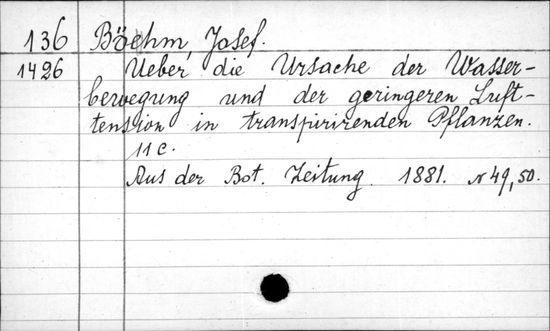 136 Böehm, Josef.
1426 Ueber die Ursache der Wasser-
bewegung und der geringeren Luft-
tension in transpirirenden Pflanzen.
11 c.
Aus der Bot. Zeitung. 1881. N 49, 50.